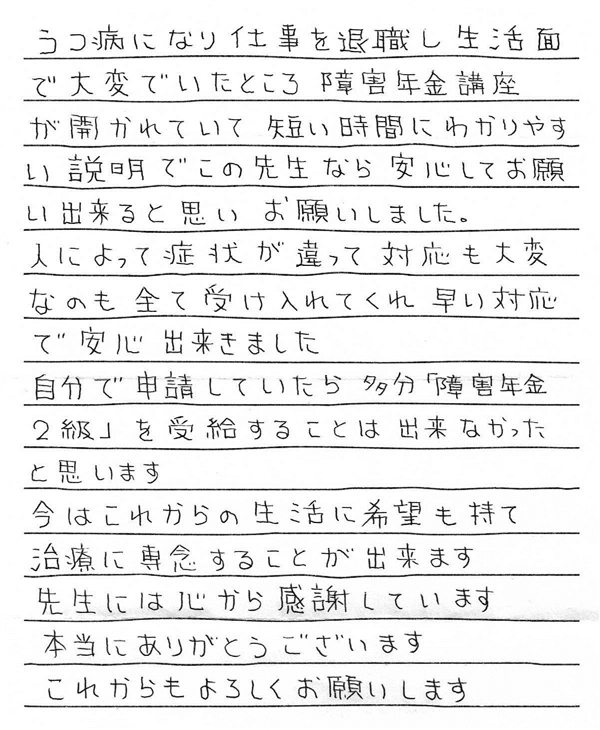 うつ病になり仕事を退職し生活面
で大変でいたところ 障害年金講座
が開かれていて 短い時間にわかりやす
い説明でこの先生なら安心してお願
い出来ると思い お願いしました。
人によって症状が違って対応も大変
なのも全て受け入れてくれ早い対応
で安心出来きました
自分で申請していたら多分「障害年金
2級」を受給することは出来なかった
と思います
今はこれからの生活に希望も持て
治療に専念することが出来ます
先生には心から感謝しています
本当にありがとうございます
これからもよろしくお願いします